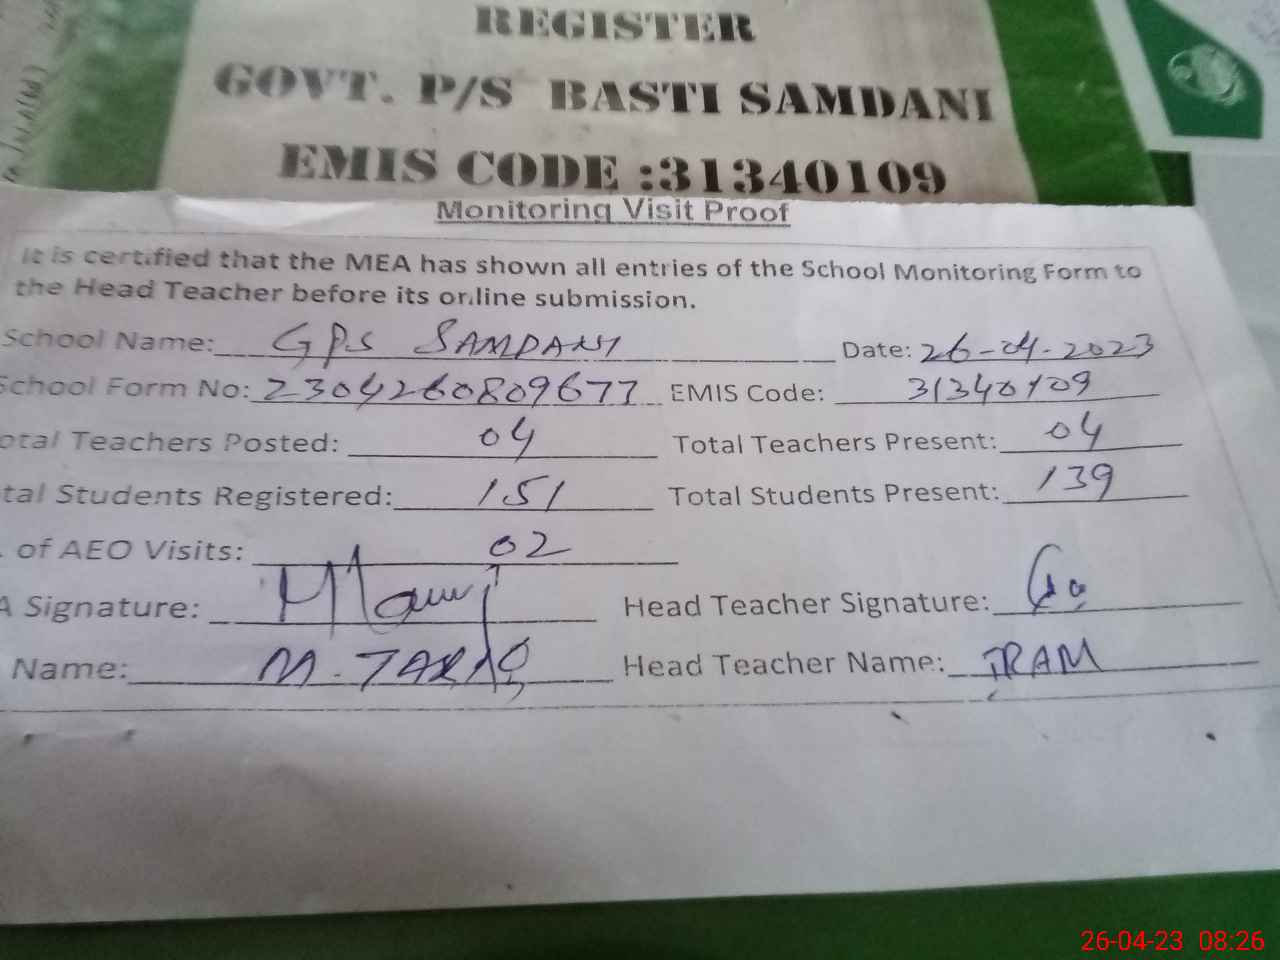 REGISTER
GOVT. P/S BASTI SAMDANI
EMIS CODE :31340109
Monitoring Visit Proof
It is certified that the MEA has shown all entries of the School Monitoring Form to
the Head Teacher before its online submission.
School Name: GPS SAMDANI Date: 26-04-2023
School Form No: 2304260809677 EMIS Code: 31340109
otal Teachers Posted: 04 Total Teachers Present: 04
tal Students Registered: 151 Total Students Present: 139
. of AEO Visits: 02
A Signature: Head Teacher Signature:
Name: M. TARIQ Head Teacher Name: IRAM
26-04-23 08:26